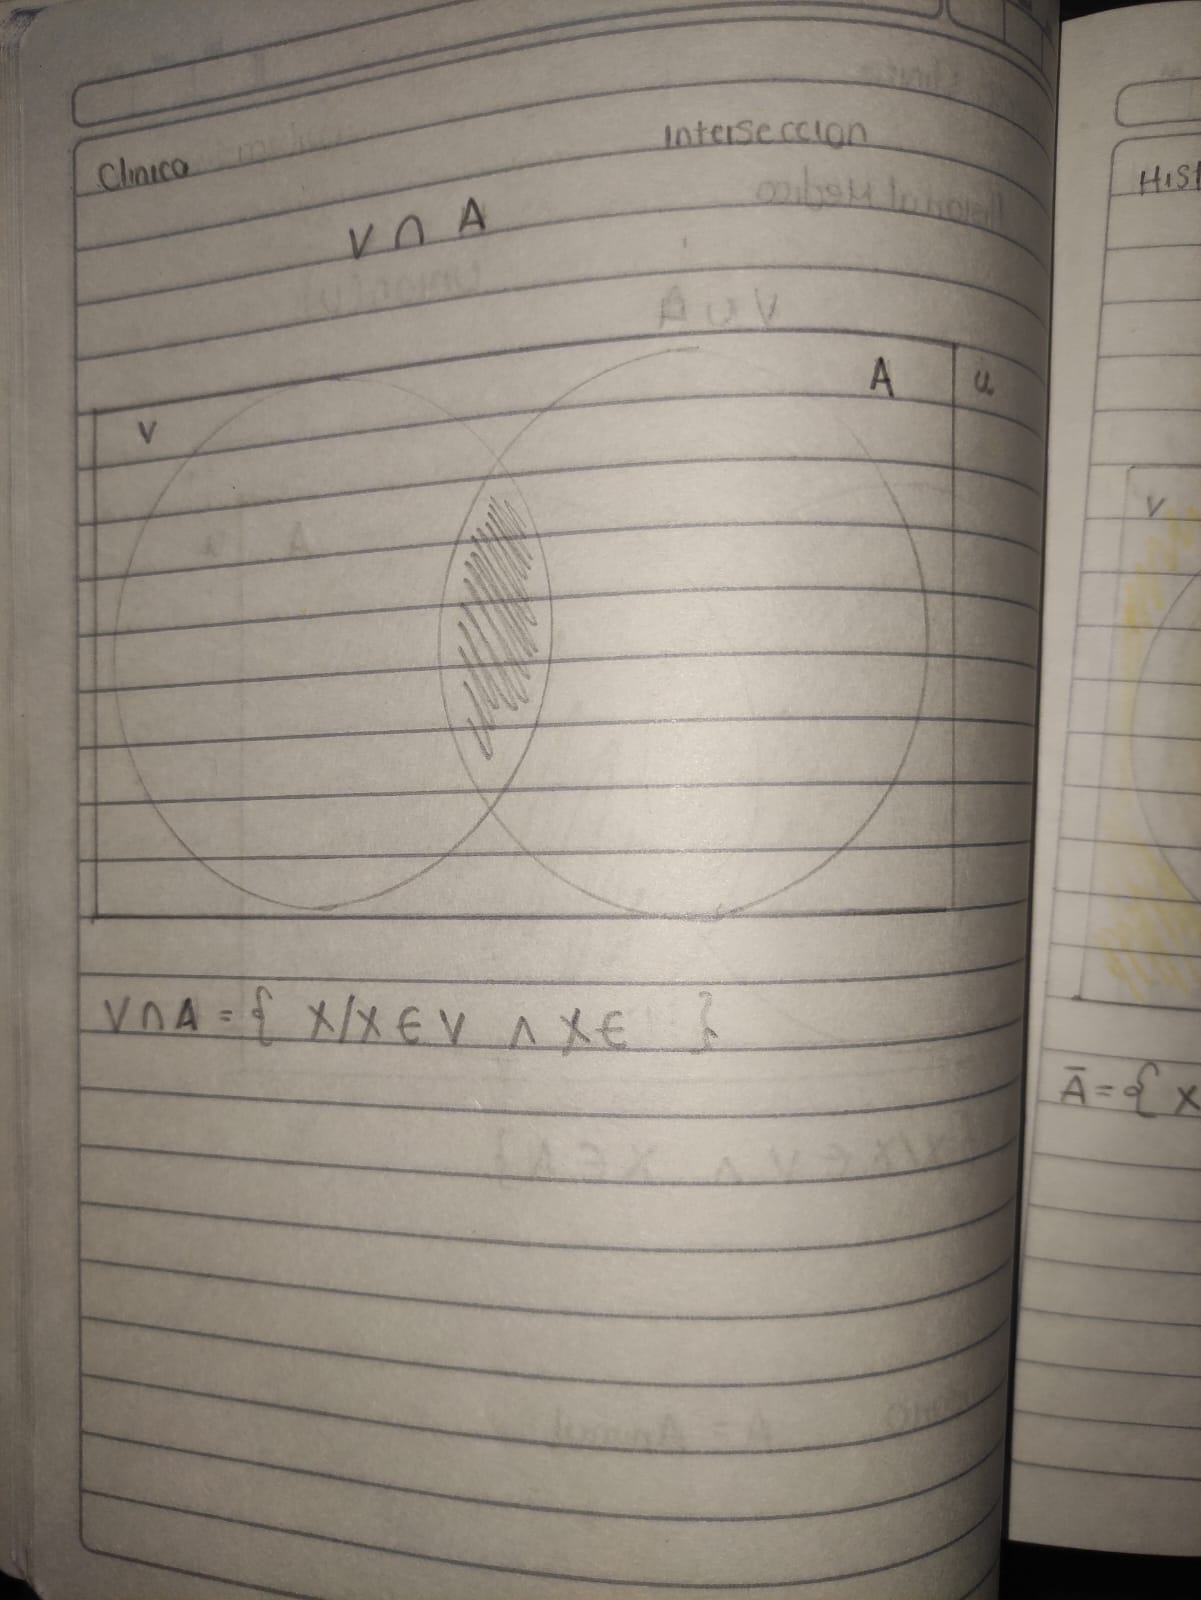 Clinico
Interseccion
V ∩ A
V
A
u
V∩A = { X/X ∈ V ∧ X ∈ }
V
Ā = { X